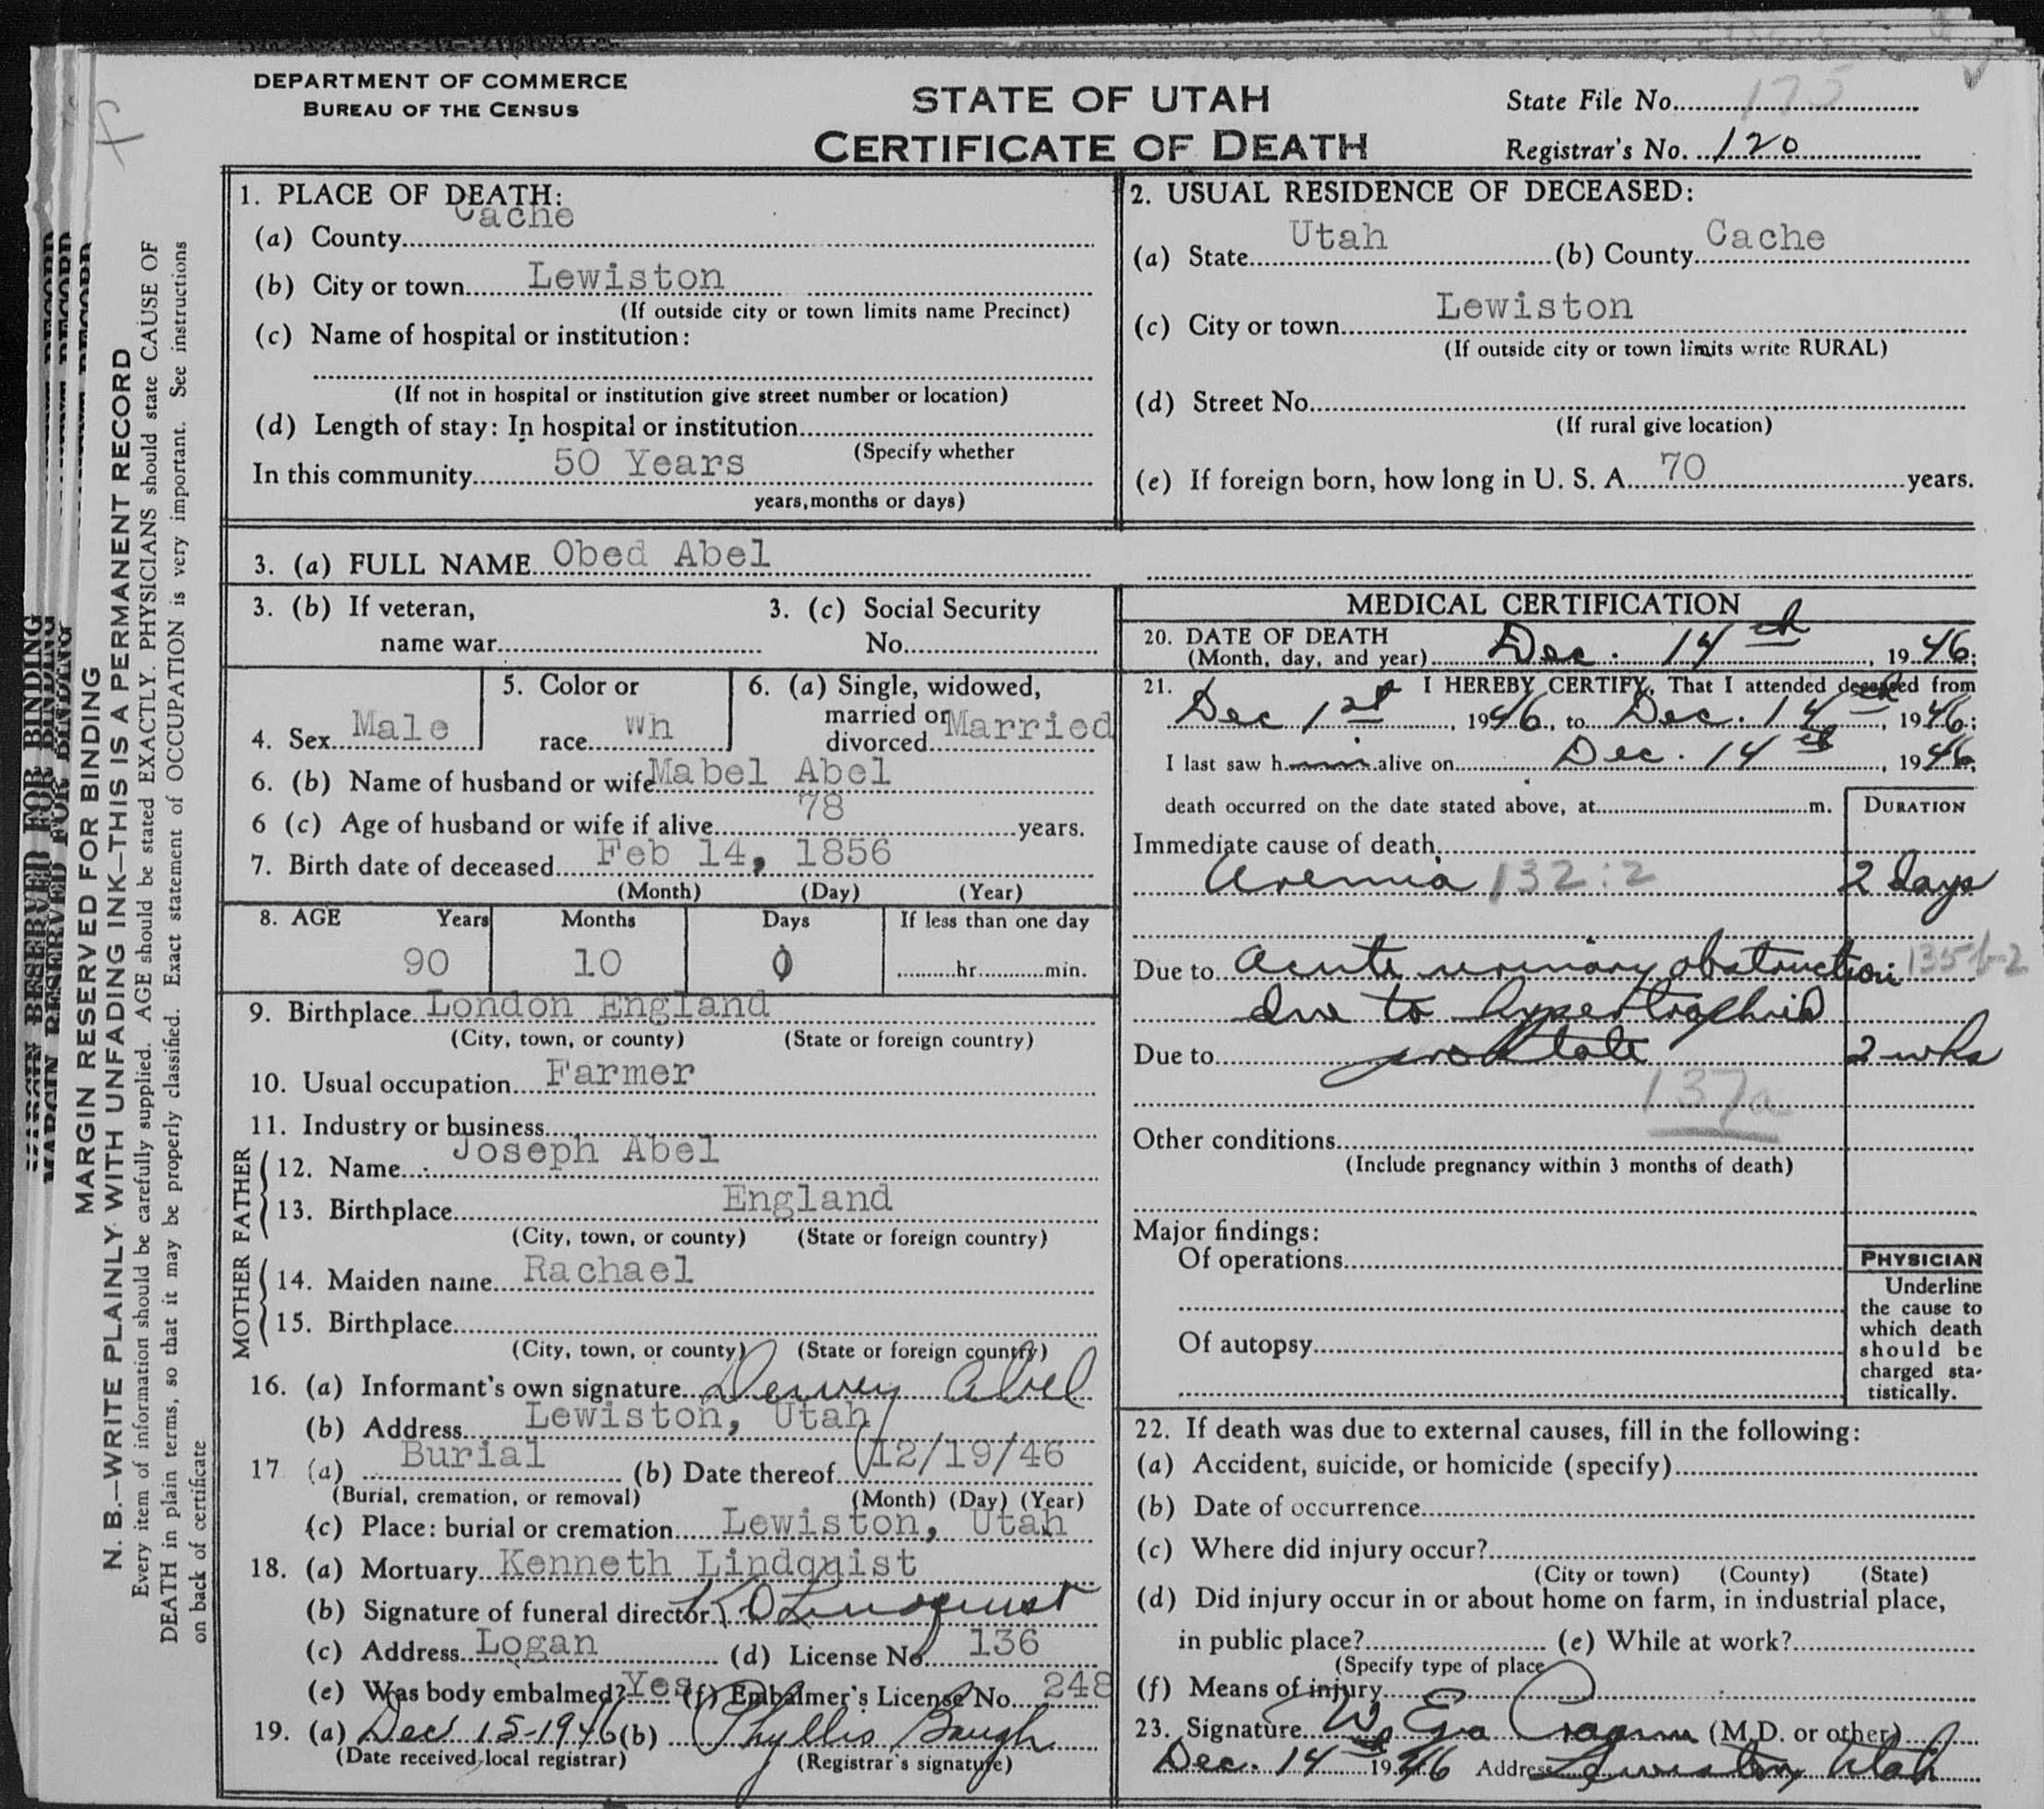 DEPARTMENT OF COMMERCE
BUREAU OF THE CENSUS
STATE OF UTAH
CERTIFICATE OF DEATH
State File No. 175
Registrar's No. 120
MARGIN RESERVED FOR BINDING
N. B.—WRITE PLAINLY WITH UNFADING INK—THIS IS A PERMANENT RECORD
Every item of information should be carefully supplied. AGE should be stated EXACTLY. PHYSICIANS should state CAUSE OF
DEATH in plain terms, so that it may be properly classified. Exact statement of OCCUPATION is very important. See instructions
on back of certificate
1. PLACE OF DEATH:
(a) County Cache
(b) City or town Lewiston
(If outside city or town limits name Precinct)
(c) Name of hospital or institution:
(If not in hospital or institution give street number or location)
(d) Length of stay: In hospital or institution
(Specify whether
In this community 50 Years
years, months or days)
2. USUAL RESIDENCE OF DECEASED:
(a) State Utah (b) County Cache
(c) City or town Lewiston
(If outside city or town limits write RURAL)
(d) Street No.
(If rural give location)
(e) If foreign born, how long in U. S. A. 70 years.
3. (a) FULL NAME Obed Abel
3. (b) If veteran,
name war
3. (c) Social Security
No.
4. Sex Male
5. Color or
race Wh
6. (a) Single, widowed,
married or
divorced Married
6. (b) Name of husband or wife Mabel Abel
6 (c) Age of husband or wife if alive 78 years.
7. Birth date of deceased Feb 14, 1856
(Month) (Day) (Year)
8. AGE Years Months Days If less than one day
90 10 0 hr. min.
9. Birthplace London England
(City, town, or county) (State or foreign country)
10. Usual occupation Farmer
11. Industry or business
FATHER
12. Name Joseph Abel
13. Birthplace England
(City, town, or county) (State or foreign country)
MOTHER
14. Maiden name Rachael
15. Birthplace
(City, town, or county) (State or foreign country)
16. (a) Informant's own signature Dewey Abel
(b) Address Lewiston, Utah
17 (a) Burial (b) Date thereof 12/19/46
(Burial, cremation, or removal) (Month) (Day) (Year)
(c) Place: burial or cremation Lewiston, Utah
18. (a) Mortuary Kenneth Lindquist
(b) Signature of funeral director K O Lindquist
(c) Address Logan (d) License No. 136
(e) Was body embalmed? Yes (f) Embalmer's License No. 248
19. (a) Dec 15-1946 (b) Phyllis Baugh
(Date received local registrar) (Registrar's signature)
MEDICAL CERTIFICATION
20. DATE OF DEATH
(Month, day, and year) Dec. 14th, 1946;
21. I HEREBY CERTIFY, That I attended deceased from
Dec 1st, 1946, to Dec. 14th, 1946;
I last saw him alive on Dec. 14th, 1946,
death occurred on the date stated above, at m.
DURATION
Immediate cause of death
Uremia 132:2 2 days
Due to Acute urinary obstruction 135b-2
due to hypertrophied
Due to prostate 2 wks
137a
Other conditions
(Include pregnancy within 3 months of death)
Major findings:
Of operations
Of autopsy
PHYSICIAN
Underline
the cause to
which death
should be
charged sta-
tistically.
22. If death was due to external causes, fill in the following:
(a) Accident, suicide, or homicide (specify)
(b) Date of occurrence
(c) Where did injury occur?
(City or town) (County) (State)
(d) Did injury occur in or about home on farm, in industrial place,
in public place? (e) While at work?
(Specify type of place
(f) Means of injury
23. Signature W. Ezra Cragun (M.D. or other)
Dec. 14th 1946 Address Lewiston, Utah